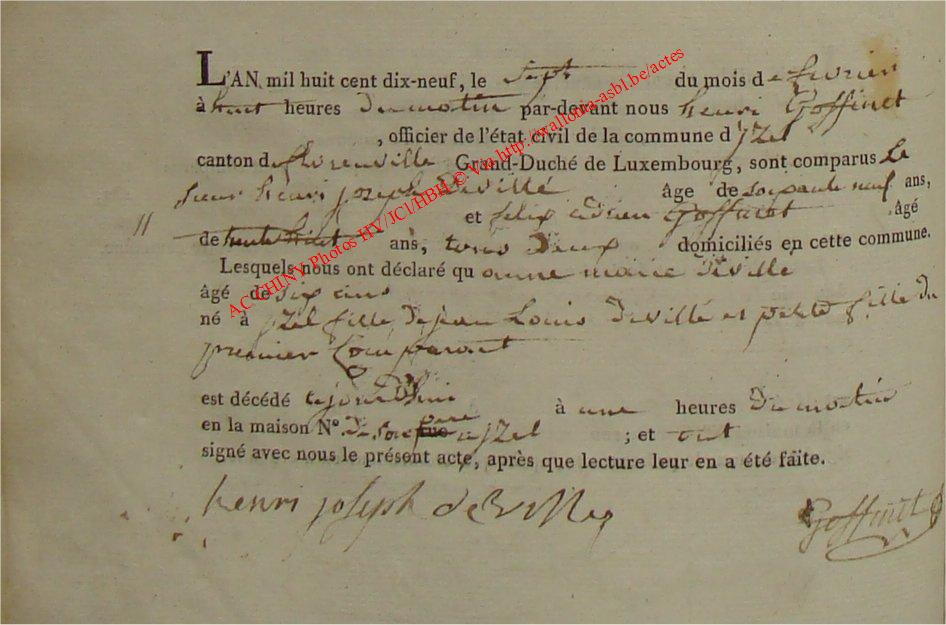 L'AN mil huit cent dix-neuf, le sept du mois de fevrier
à huit heures du matin par-devant nous henri Goffinet
, officier de l'état civil de la commune d'Jzel
canton de florenville Grand-Duché de Luxembourg, sont comparus Le
sieur henri joseph deville âgé de soixante neuf ans,
et felix adrien Goffinet âgé
de trente huit ans, tous deux domiciliés en cette commune.
Lesquels nous ont déclaré qu'anne marie deville
âgé de six ans
né à jzel fille de jean Louis deville et petite fille du
premier Comparant
est décédé aujourd'hui à une heures du matin
en la maison N°. de son père a jzel ; et ont
signé avec nous le présent acte, après que lecture leur en a été faite.
henri joseph deville Goffinet
AC CHINY Photos HV/JCl/HBH © Via http://wallonia-asbl.be/actes